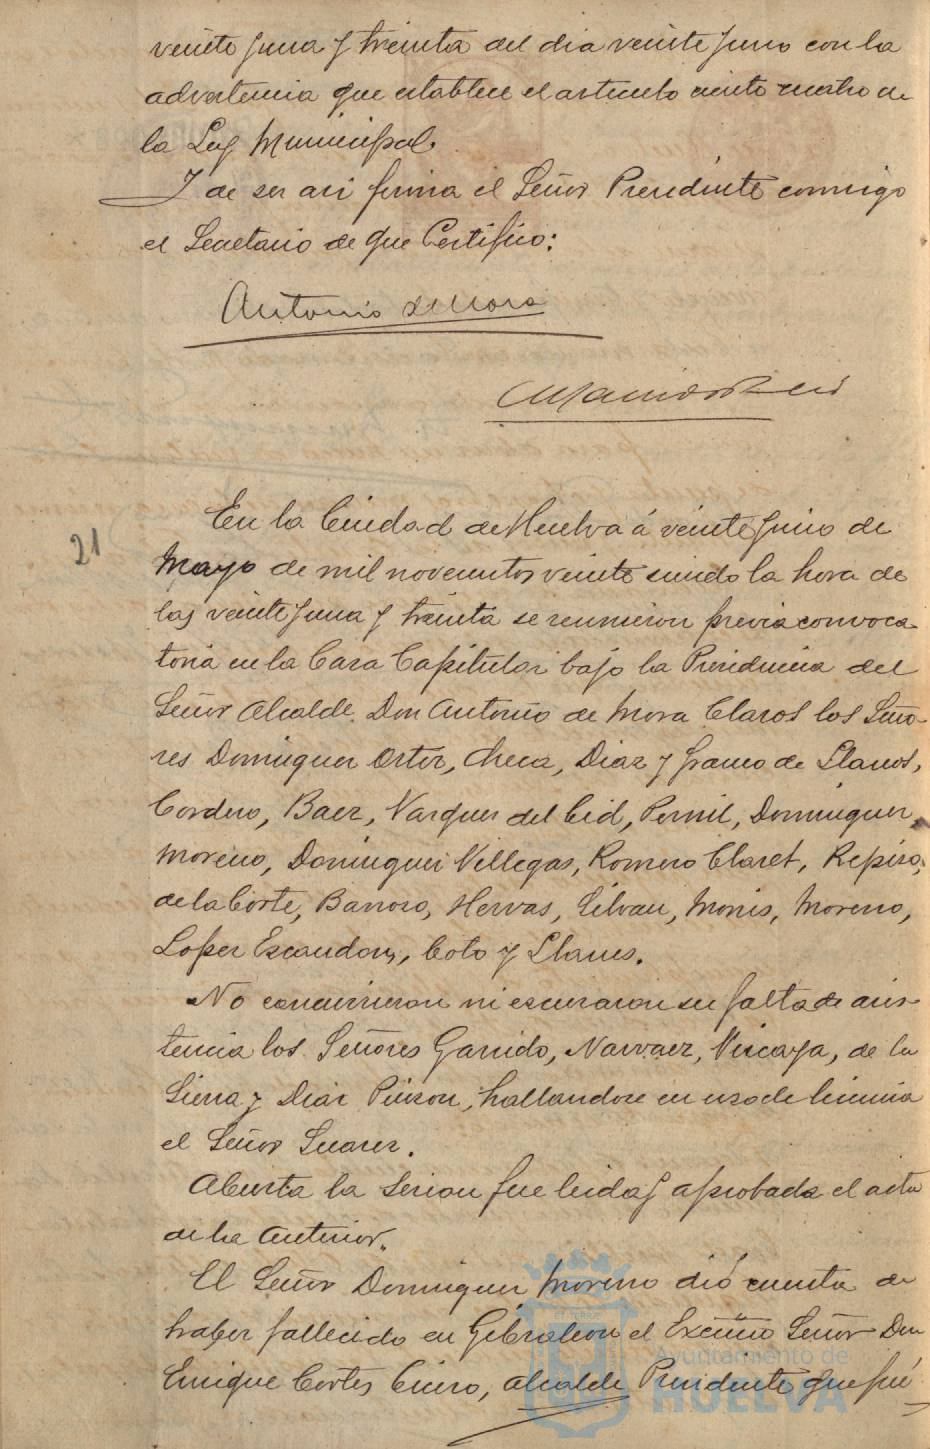 veinte y una y treinta del dia veinte y uno con la
advertencia que establece el articulo ciento cuatro de
la Ley Municipal.
Y de ser asi firma el Señor Presidente conmigo
el Secretario de que Certifico:
Antonio de Mora
21
En la Ciudad de Huelva á veinte y uno de
Mayo de mil novecientos veinte siendo la hora de
las veinte y una y treinta se reunieron previa convoca-
toria en la Casa Capitular bajo la Presidencia del
Señor Alcalde Don Antonio de Mora Claros los Seño-
res Dominguez Ortiz, Checa, Diaz y Franco de Llanos,
Cordero, Baez, Vazquez del Cid, Pernil, Dominguez,
Moreno, Dominguez Villegas, Romero Claret, Repiso,
de la Corte, Barroso, Hervas, Gilvau, Monis, Moreno,
Lopez Escandon, Coto y Llanes.
No concurrieron ni escusaron su falta de asis-
tencia los Señores Garrido, Narvaez, Viscaya, de la
Sierra y Diaz Pinzon, hallandose en uso de licencia
el Señor Suarez.
Abierta la sesion fue leida y aprobada el acta
de la anterior.
El Señor Dominguez Moreno dió cuenta de
haber fallecido en Gibraleon el Excmo Señor Don
Enrique Cortes Cicero, Alcalde Presidente que fué
Ayuntamiento de
HUELVA